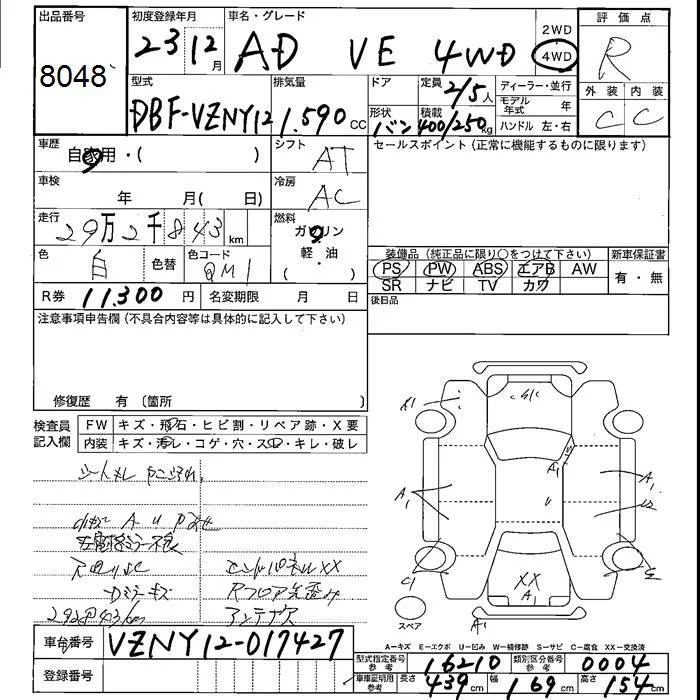 出品番号
8048
初度登録年月
23 12月
車名・グレード
AD VE 4WD
2WD
4WD
評価点
R
外装 内装
C C
型式
DBF-VZNY12
排気量
1.590cc
ドア
形状
バン
定員
2/5人
積載
400/250kg
ディーラー・並行
モデル年式 年
ハンドル 左・右
車歴
自家用・( )
シフト
AT
セールスポイント(正常に機能するものに限ります)
車検
年 月( 日)
冷房
AC
走行
29万2千843km
燃料
ガソリン
軽・油
( )
色
白
色替
色コード
QM1
装備品(純正品に限り○をつけて下さい)
新車保証書
PS PW ABS エアB AW
SR ナビ TV カワ
有・無
R券 11,300円
名変期限 月 日
後日品
注意事項申告欄(不具合内容等は具体的に記入して下さい)
修復歴 有〔箇所 〕
検査員記入欄
FW キズ・飛石・ヒビ割・リペア跡・X要
内装 キズ・汚レ・コゲ・穴・スレ・キレ・破レ
エンドパネルXX
アンテナ欠
A1
A1
A1
A1
U
XX
A1
A1
C1
スペア
A-キズ E-エクボ U-凹み W-補修跡 S-サビ C-腐食 XX-交換済
車台番号
VZNY12-017427
登録番号
型式指定番号 参考
16210
類別区分番号 参考
0004
車庫証明用 参考
長さ 439cm
幅 169cm
高さ 154cm